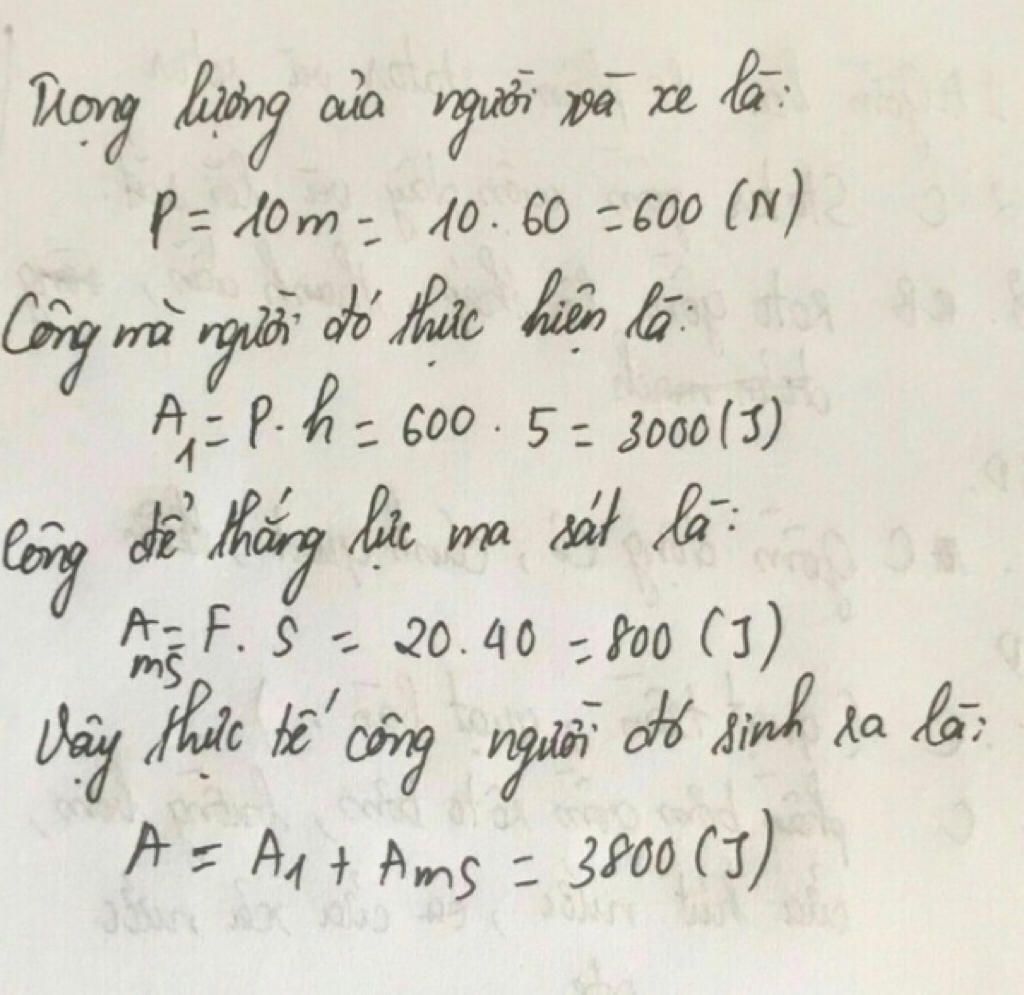 Trọng lượng của người và xe là:
P = 10m = 10. 60 = 600 (N)
Công mà người đó thực hiện là:
A₁ = P. h = 600 . 5 = 3000 (J)
Công để thắng lực ma sát là:
Ams = F. S = 20. 40 = 800 (J)
Vậy thực tế công người đó sinh ra là:
A = A₁ + Ams = 3800 (J)